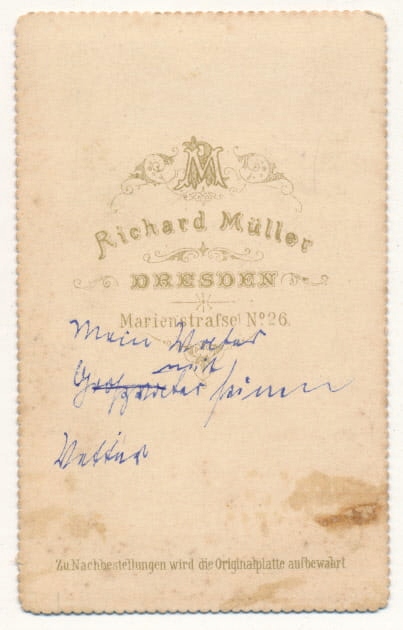 M
Richard Müller
DRESDEN
Marienstraſse Nº 26.
Mein Vater
mit
Großvater seinem
Vetter
Zu Nachbestellungen wird die Originalplatte aufbewahrt